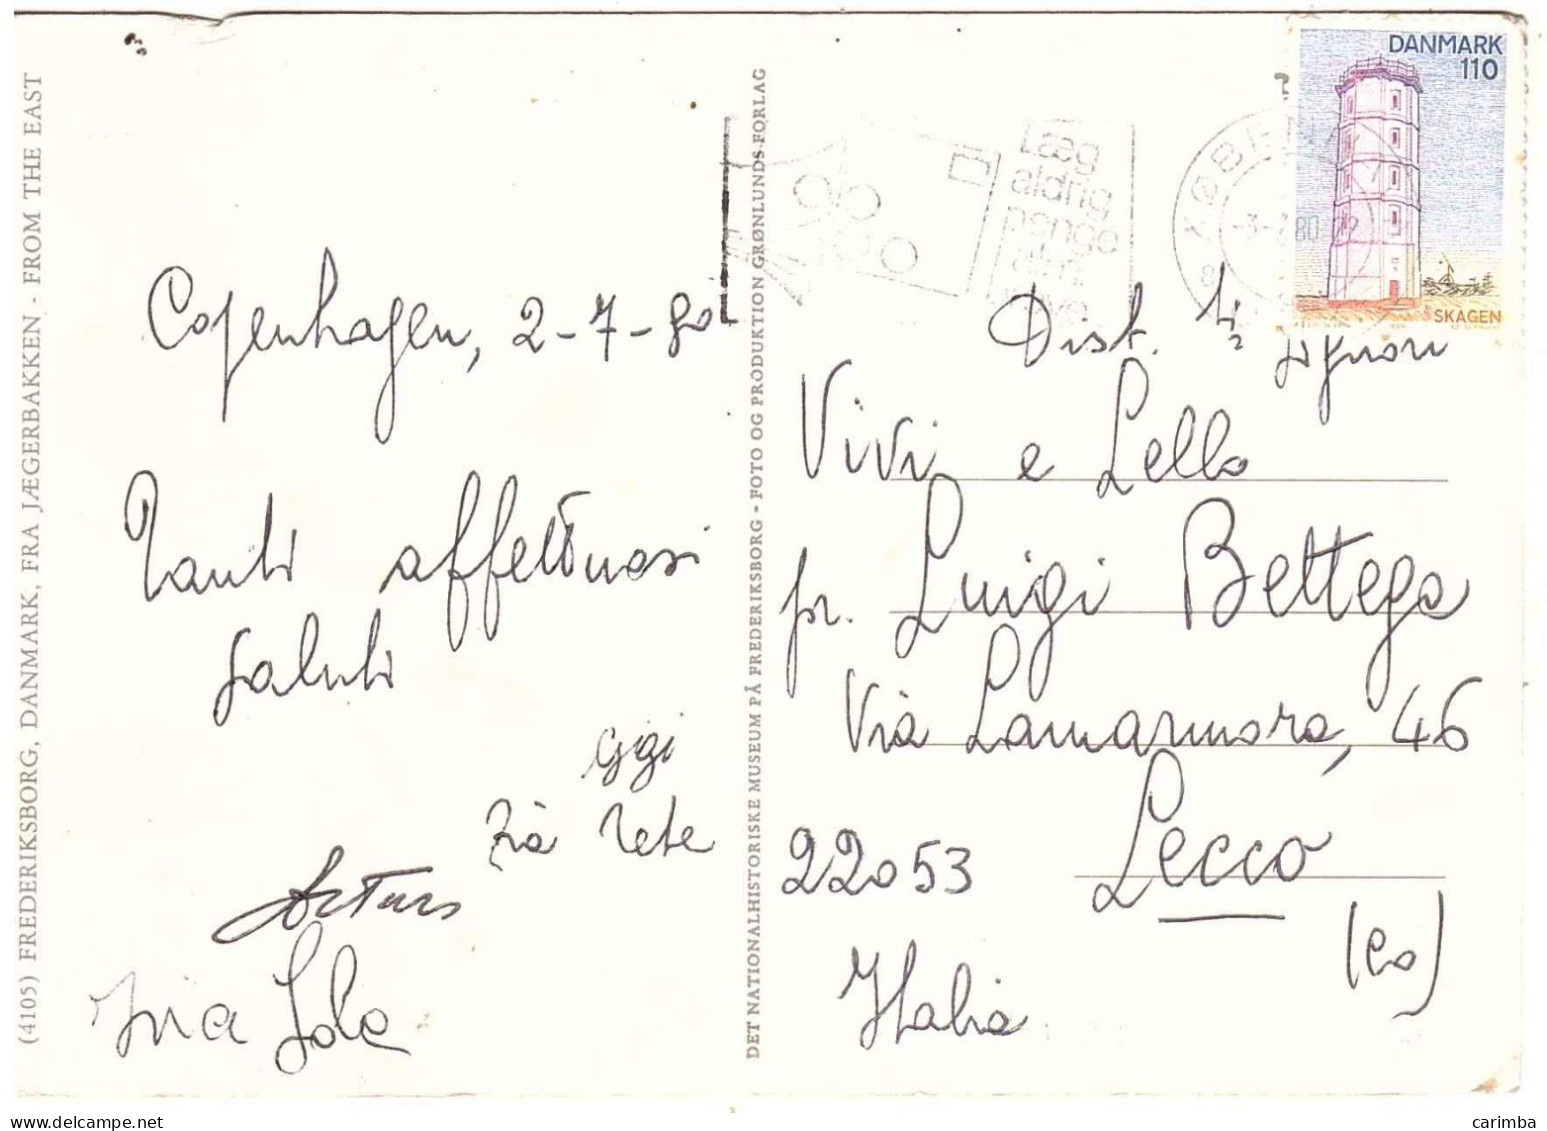 (4105) FREDERIKSBORG, DANMARK, FRA JÆGERBAKKEN - FROM THE EAST
Copenhagen, 2-7-80
Tanti affettuosi
saluti
Gigi
zia Rete
Arturo
DET NATIONALHISTORISKE MUSEUM PÅ FREDERIKSBORG - FOTO OG PRODUKTION GRØNLUNDS FORLAG
Læg
aldrig
penge
i
KØBEN
3-7.80
DANMARK
110
SKAGEN
Dist.
Signori
Vivi e Lello
pr. Luigi Bettega
Via Lamarmora, 46
22053 Lecco
(Co)
Italia
carimba